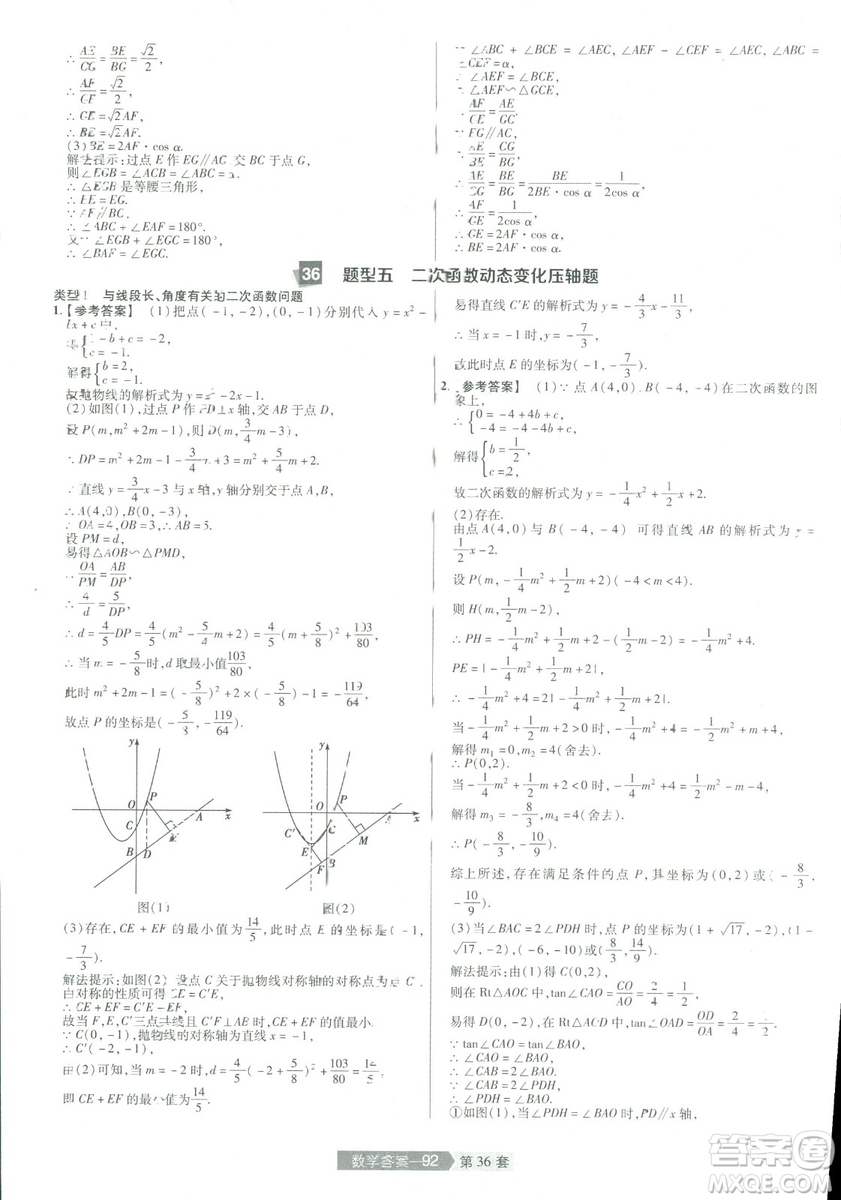 ∴ AE/CG = BE/BG = √2/2,
∴ AF/CE = √2/2,
∴ CE = √2AF,
∴ BE = 2AF.
(3) BE = 2AF · cos α.
解法提示:过点 E 作 EG∥AC 交 BC 于点 G,
则∠EGB = ∠ACB = ∠ABC = α,
∴ △EGB 是等腰三角形,
∴ BE = EG.
∵ AF∥BC,
∴ ∠ABC + ∠EAF = 180°.
又∵ ∠EGB + ∠EGC = 180°,
∵ ∠ABC + ∠BCE = ∠AEC, ∠CEF + ∠AEF = ∠AEC, ∠ABC =
∠CEF = α,
∴ ∠AEF = ∠BCE,
∴ △AEF∽△GCE,
∴ AF/CE = AE/GC.
∵ EG∥AC,
∴ AE/CG = BE/BG,
∴ AE/CG = BE/BG = BE/(2BE · cos α) = 1/(2cos α),
∴ AF/CE = 1/(2cos α),
36 题型五 二次函数动态变化压轴题
类型1 与线段长、角度有关的二次函数问题
1.【参考答案】 (1)把点(-1,-2),(0,-1)分别代入 y=x²+
bx+c中,
得{1-b+c=-2, c=-1,
解得{b=2, c=-1,
故抛物线的解析式为 y=x²+2x-1.
(2)如图(1),过点 P 作 PD⊥x 轴,交 AB 于点 D,
设 P(m,m²+2m-1),则 D(m,3/4m-3),
∴ DP=m²+2m-1-3/4m+3=m²+5/4m+2.
∵ 直线 y=3/4x-3 与 x 轴,y 轴分别交于点 A,B,
∴ A(4,0),B(0,-3),
∴ OA=4,OB=3,AB=5.
设 PM=d,
易得△AOB∽△PMD,
∴ OA/PM = AB/DP,
∴ 4/d = 5/DP,
∴ d=4/5DP=4/5(m²+5/4m+2)=4/5(m+5/8)²+103/80,
∴ 当 m=-5/8时,d 取最小值103/80,
此时 m²+2m-1=(-5/8)²+2×(-5/8)-1=-119/64,
故点 P 的坐标是(-5/8,-119/64).
y P O A x C M B D
图(1)
y P O A x C′ C E M B F
图(2)
(3)存在,CE+EF 的最小值为14/5,此时点 E 的坐标是(-1,
-7/3).
解法提示:如图(2)设点 C 关于抛物线对称轴的对称点为点 C′,
由对称的性质可得 CE=C′E,
∴ CE+EF=C′E+EF,
故当 F,E,C′三点共线且 C′F⊥AB 时,CE+EF 的值最小.
∵ C(0,-1),抛物线的对称轴为直线 x=-1,
∴ C′(-2,-1),
由(2)可知,当 m=-2 时,d=4/5×(-2+5/8)²+103/80=14/5,
即 CE+EF 的最小值为14/5.
易得直线 C′E 的解析式为 y=-4/3x-11/3,
∴ 当 x=-1 时,y=-7/3,
故此时点 E 的坐标为(-1,-7/3).
2.【参考答案】 (1)∵ 点 A(4,0),B(-4,-4)在二次函数的图
象上,
∴ {0=-4+4b+c, -4=-4-4b+c,
解得{b=1/2, c=2,
故二次函数的解析式为 y=-1/4x²+1/2x+2.
(2)存在.
由点 A(4,0)与 B(-4,-4)可得直线 AB 的解析式为 y=
1/2x-2.
设 P(m,-1/4m²+1/2m+2)(-4<m<4),
则 H(m,1/2m-2),
∴ PH=-1/4m²+4,
PE=|-1/4m²+1/2m+2|,
∴ -1/4m²+4=2|-1/4m²+1/2m+2|.
当-1/4m²+1/2m+2>0 时,-1/4m²+4=-1/2m²+m+4,
解得 m₁=0,m₂=4(舍去).
∴ P(0,2).
当-1/4m²+1/2m+2<0 时,-1/4m²+4=1/2m²-m-4,
解得 m₃=-8/3,m₄=4(舍去),
∴ P(-8/3,-10/9).
综上所述,存在满足条件的点 P,其坐标为(0,2)或(-8/3,
-10/9).
(3)当∠BAC=2∠PDH 时,点 P 的坐标为(1+√17,-2)或(1-
√17,-2)或(-6,-10)或(8/3,14/9).
解法提示:由(1)得 C(0,2),
则在 Rt△AOC 中,tan∠CAO=CO/AO=2/4=1/2,
易得 D(0,-2),在 Rt△AOD 中,tan∠OAD=OD/OA=2/4=1/2,
∵ tan∠CAO=tan∠BAO,
∴ ∠CAO=∠BAO,
∴ ∠CAB=2∠BAO,
∴ ∠PDH=∠BAO.
①如图(1),当∠PDH=∠BAO 时,PD∥x 轴,
数学答案—92 第 36 套
答案圈
MXQE.COM